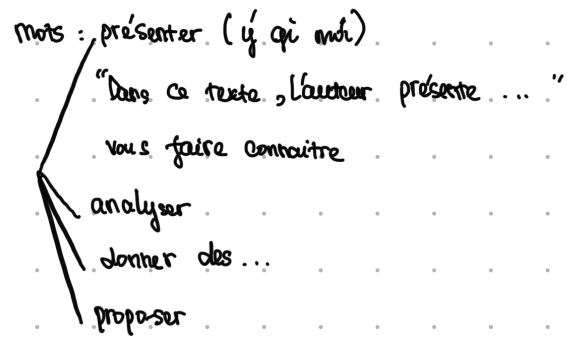 mots : présenter (ý gì mới)
"Dans ce texte, l'auteur présente ... "
vous faire connaitre
analyser
donner des ...
proposer